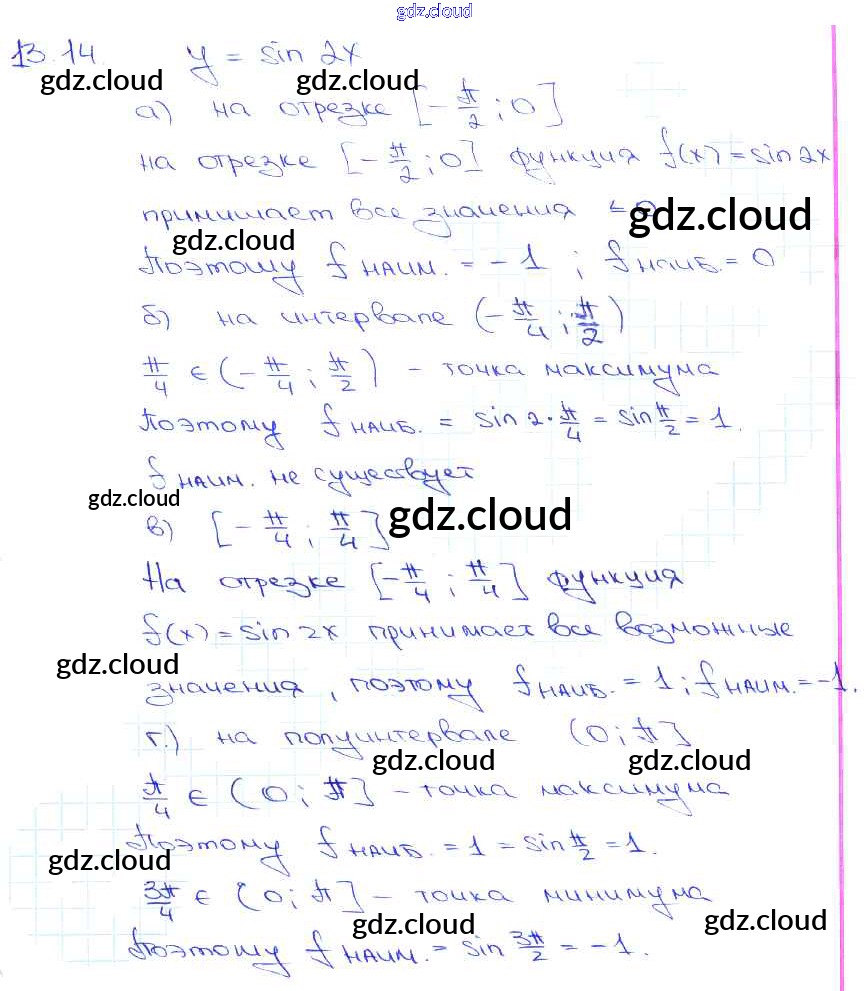 gdz.cloud
13.14. y = sin 2x
gdz.cloud gdz.cloud
а) на отрезке [-π/2; 0]
на отрезке [-π/2; 0] функция f(x) = sin 2x
принимает все значения ≤ 0
gdz.cloud
gdz.cloud
Поэтому f наим. = -1; f наиб. = 0
б) на интервале (-π/4; π/2)
π/4 ∈ (-π/4; π/2) - точка максимума
Поэтому f наиб. = sin 2·π/4 = sin π/2 = 1.
f наим. не существует
gdz.cloud gdz.cloud
в) [-π/4; π/4]
На отрезке [-π/4; π/4] функция
f(x) = sin 2x принимает все возможные
gdz.cloud
значения, поэтому f наиб. = 1; f наим. = -1.
г.) на полуинтервале (0; π]
gdz.cloud gdz.cloud
π/4 ∈ (0; π] - точка максимума
Поэтому f наиб. = 1 = sin π/2 = 1.
gdz.cloud
3π/4 ∈ (0; π] - точка минимума
gdz.cloud gdz.cloud
Поэтому f наим. = sin 3π/2 = -1.